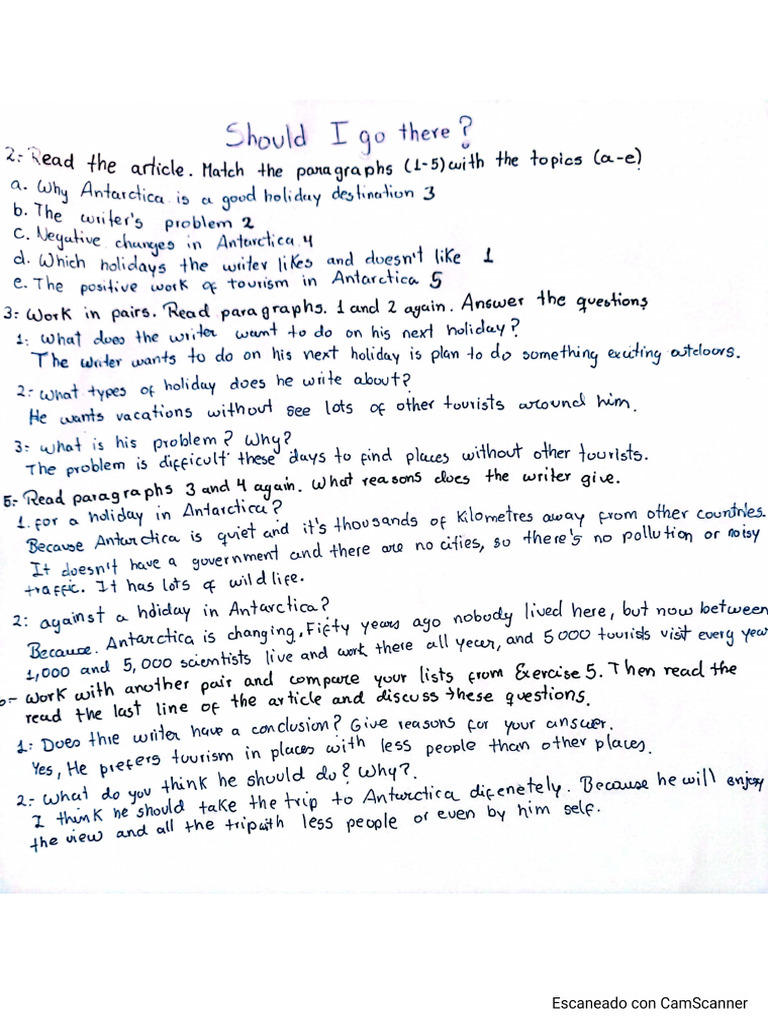 Should I go there?
2:- Read the article. Match the paragraphs (1-5) with the topics (a-e)
a. Why Antarctica is a good holiday destination 3
b. The writer's problem 2
c. Negative changes in Antarctica 4
d. Which holidays the writer likes and doesn't like 1
e. The positive work of tourism in Antarctica 5
3: Work in pairs. Read paragraphs. 1 and 2 again. Answer the questions
1: What does the writer want to do on his next holiday?
The writer wants to do on his next holiday is plan to do something exciting outdoors.
2:- What types of holiday does he write about?
He wants vacations without see lots of other tourists around him.
3: What is his problem? Why?
The problem is difficult these days to find places without other tourists.
5:- Read paragraphs 3 and 4 again. What reasons does the writer give.
1. for a holiday in Antarctica?
Because Antarctica is quiet and it's thousands of Kilometres away from other countries.
It doesn't have a government and there are no cities, so there's no pollution or noisy
traffic. It has lots of wildlife.
2: against a holiday in Antarctica?
Because. Antarctica is changing, Fifty years ago nobody lived here, but now between
1,000 and 5,000 scientists live and work there all year, and 5000 tourists visit every year
6:- Work with another pair and compare your lists from Exercise 5. Then read the
read the last line of the article and discuss these questions.
1: Does thie writer have a conclusion? Give reasons for your answer.
Yes, He prefers tourism in places with less people than other places.
2:- What do you think he should do? Why?.
I think he should take the trip to Antarctica difenetely. Because he will enjoy
the view and all the trip with less people or even by him self.
Escaneado con CamScanner